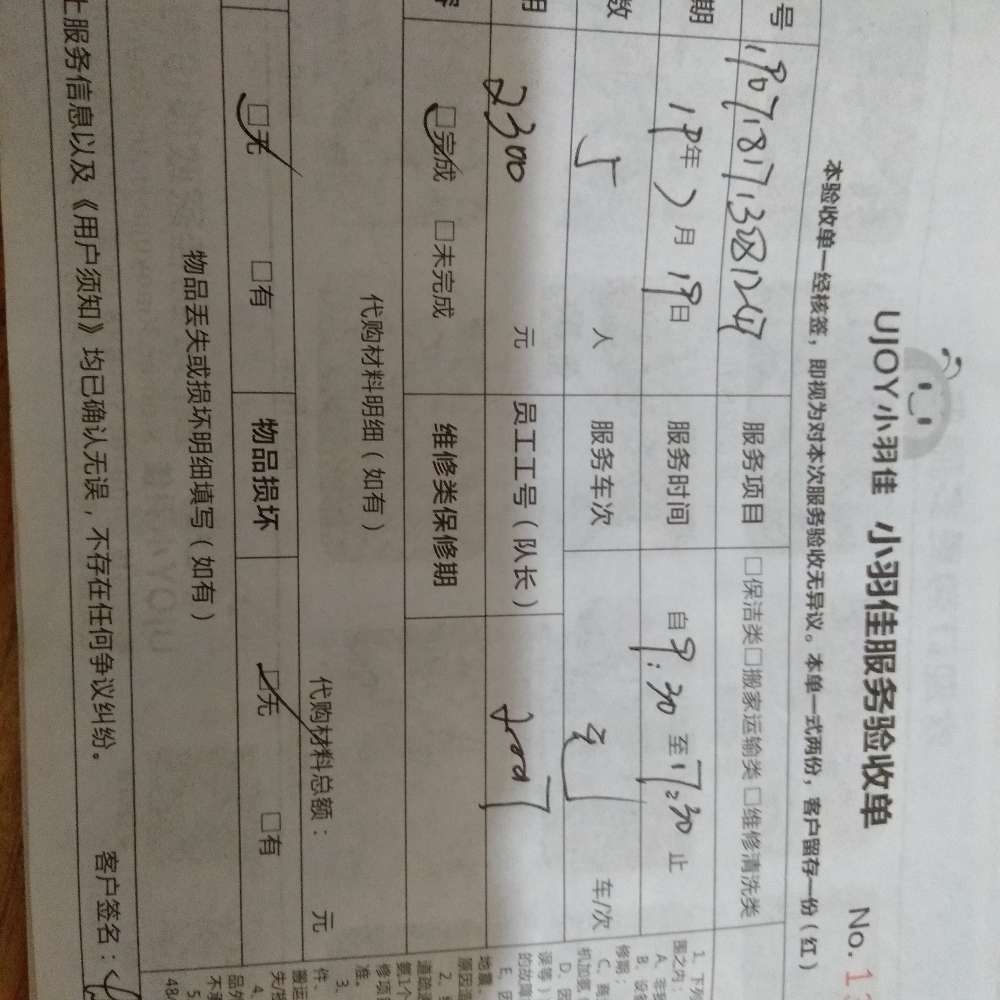 UJOY小羽佳 小羽佳服务验收单 No.1
本验收单一经核签，即视为对本次服务验收无异议。本单一式两份，客户留存一份（红）
号 服务项目 □保洁类□搬家运输类□维修清洗类
期 19年7月19日 服务时间 自9:30至17:30止
数 5人 服务车次 车/次
用 2300元 员工工号（队长）
□完成 □未完成 维修类保修期
代购材料明细（如有）
代购材料总额： 元
□无 □有 物品损坏 □无 □有
物品丢失或损坏明细填写（如有）
上服务信息以及《用户须知》均已确认无误，不存在任何争议纠纷。 客户签名：
1、下列
围之内：
修期；
D、因
的故障
地震、
原因造
修项目
准。
3、
件、
搬运
4、
品外
不承
5、
48小